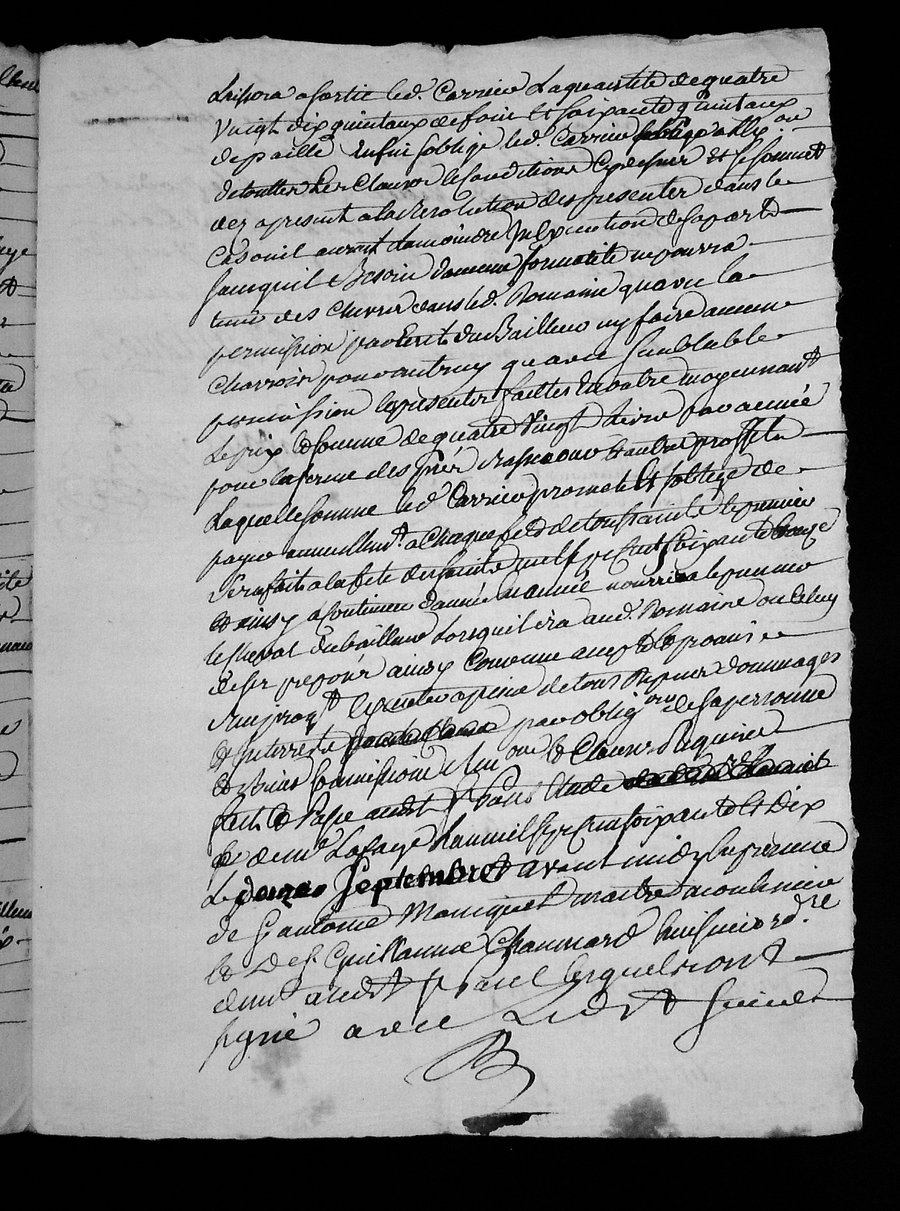 Laissera a sortie led. Carrier La quantité de quatre
Vingt dix quintaux de foin Et soixante quintaux
de paille Enfin soblige led. Carrier
de touttes Les Clauses Conditions Cydessus Et
dez apresent a la Resolution des presentes dans le
Cas ou il auroit la moindre Inexecution de sa part
sans quil Besoin daucune formalité ne pourra
tenir des Chevres dans led. Domaine quavec la
permission par Ecrit du Bailleur ny faire aucun
Charrois pour autruy quavec semblable
permission Les presentes faittes En outre moyennant
Le prix Et somme de quatre Vingt Livres par année
pour la ferme des prés Et autres proffits
Laquelle somme led. Carrier promet Et soblige de
payer annuellemt. a Chaque fete de toussaints le premier
sera fait a la fete des saints mil sept Cent soixante
Et ainsy a Continuer dannée En année nourrira le preneur
le Cheval du bailleur Lorsquil ira aud. Domaine ou Celuy
de ses preposés ainsy Convenu accepté Et promis
Executer a peine de tous Depens Dommages
Et Interrets par oblig.on de sa personne
Et Biens soumissions Ren.ons Et Clauses Requises
fait Et Passé audt. St. paul Etude
de me. Lafaye Lan mil sept Cent soixante Et Dix
Le Septembre avant midy En presence
de Sr. antoine maitre moulinier
Et de Sr. Guillaume Chaumard huissier ord.re
demt. audt. St. paul Lesquels ont
signé avec Ledt.